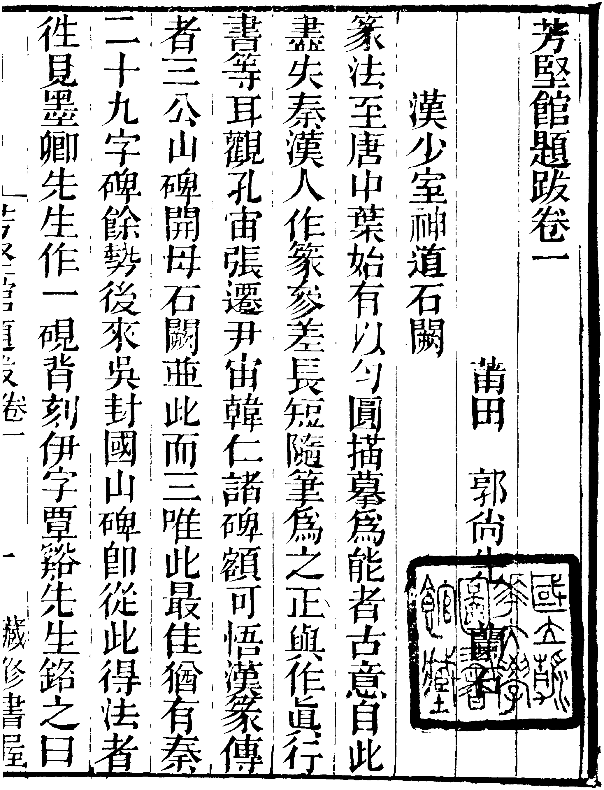 芳堅館題跋卷一
莆田　郭尙先　蘭石
漢少室神道石闕
篆法至唐中葉始有以勻圓描摹爲能者古意自此
盡失秦漢人作篆參差長短隨筆爲之正與作眞行
書等耳觀孔宙張遷尹宙韓仁諸碑額可悟漢篆傳
者三公山碑開母石闕亞此而三唯此最佳猶有秦
二十九字碑餘勢後來吳封國山碑卽從此得法者
徃見墨卿先生作一硯背刻伊字覃谿先生銘之曰
芳堅館題跋卷一　一　藏修書屋